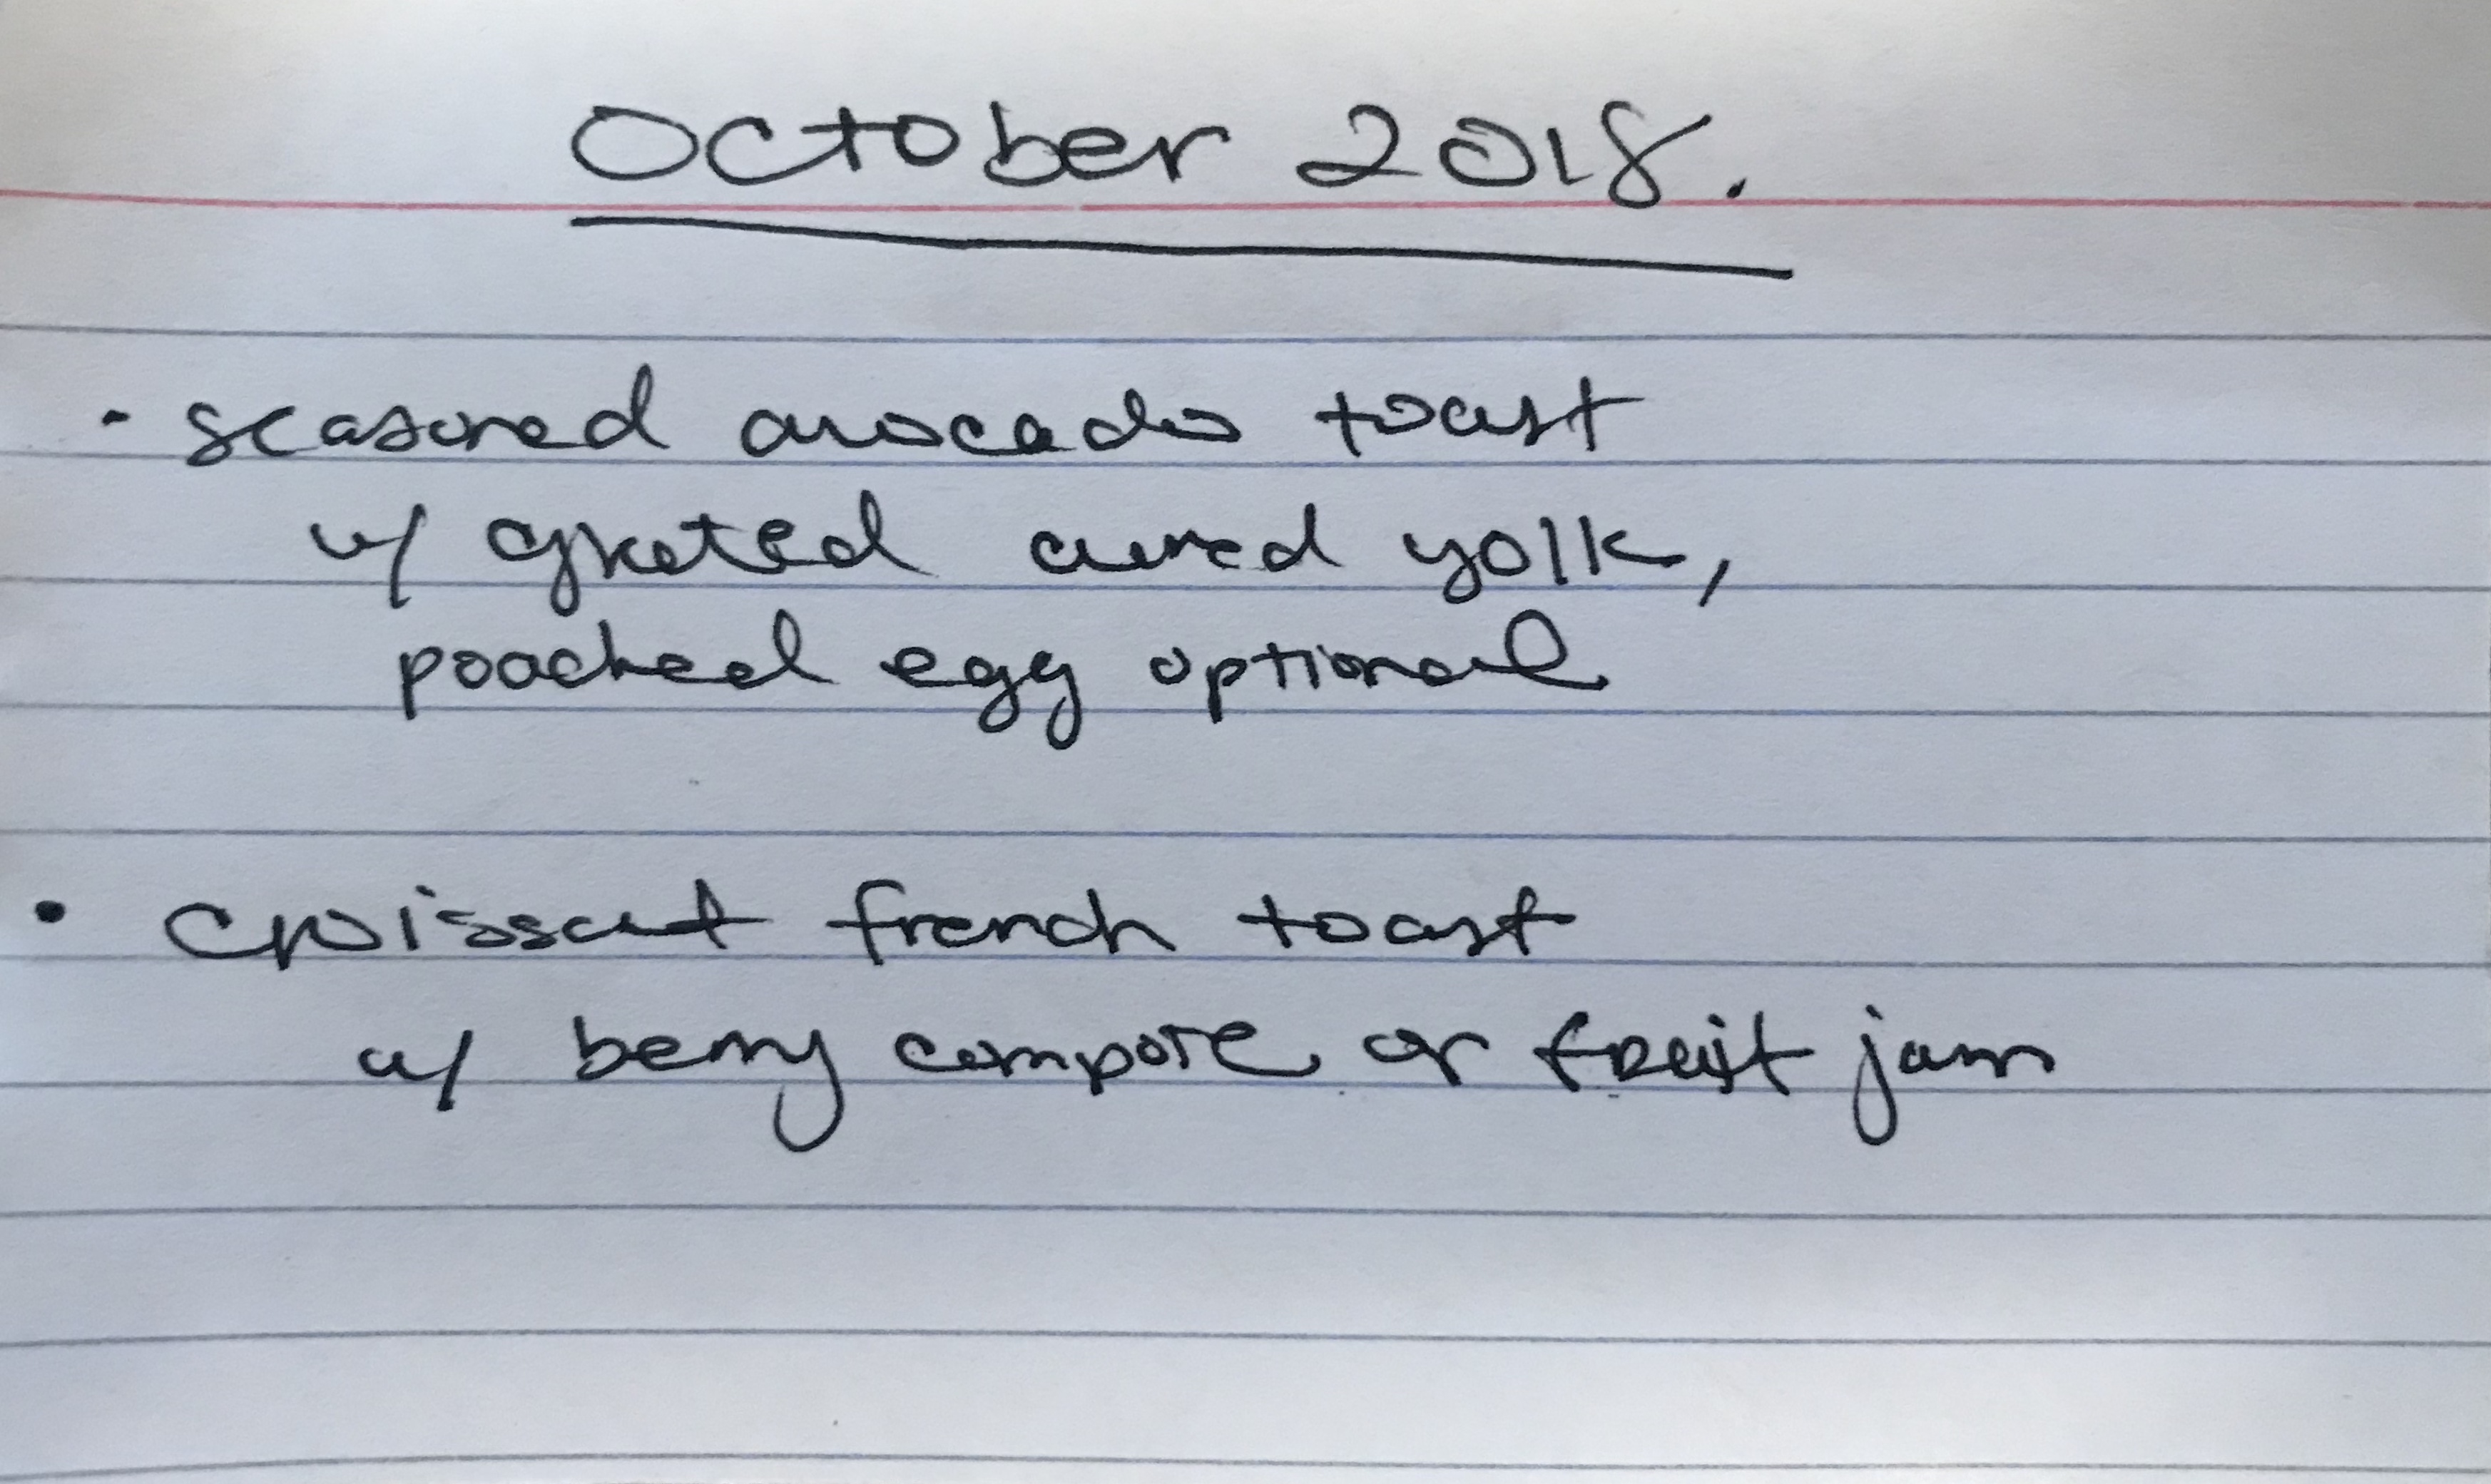 October 2018.
• seasoned avocado toast
w/ grated cured yolk,
poached egg optional
• croissant french toast
w/ berry compote or fruit jam